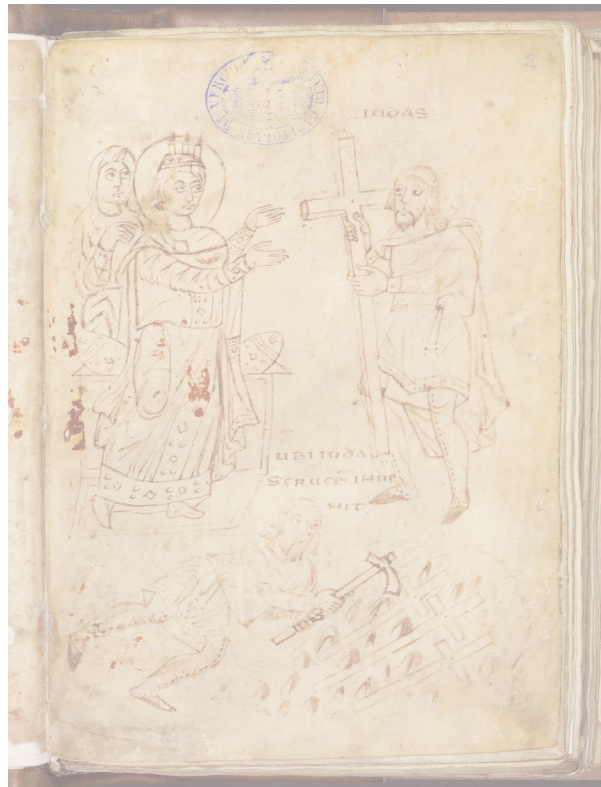 2
IUDAS
UBI IUDA
S CRUCĒ INUE
NIT